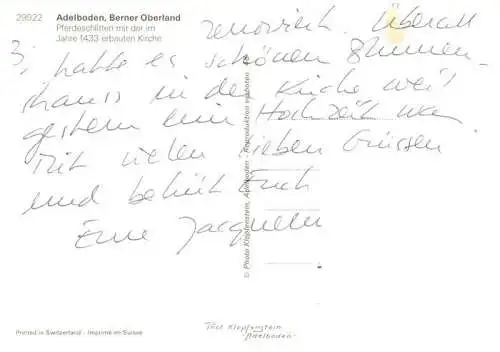 29922 Adelboden, Berner Oberland
Pferdeschlitten mit der im
Jahre 1433 erbauten Kirche
renoviert. Überall
3; hatte es schönen Blumen-
in der Kirche weil
gestern ein Hochzeit war
Mit vielen lieben Grüssen
und behüt Euch
Eure Jacqueline
© Photo Klopfenstein, Adelboden - Reproduktion verboten
Printed in Switzerland - Imprimé en Suisse
Klopfenstein
- Adelboden -